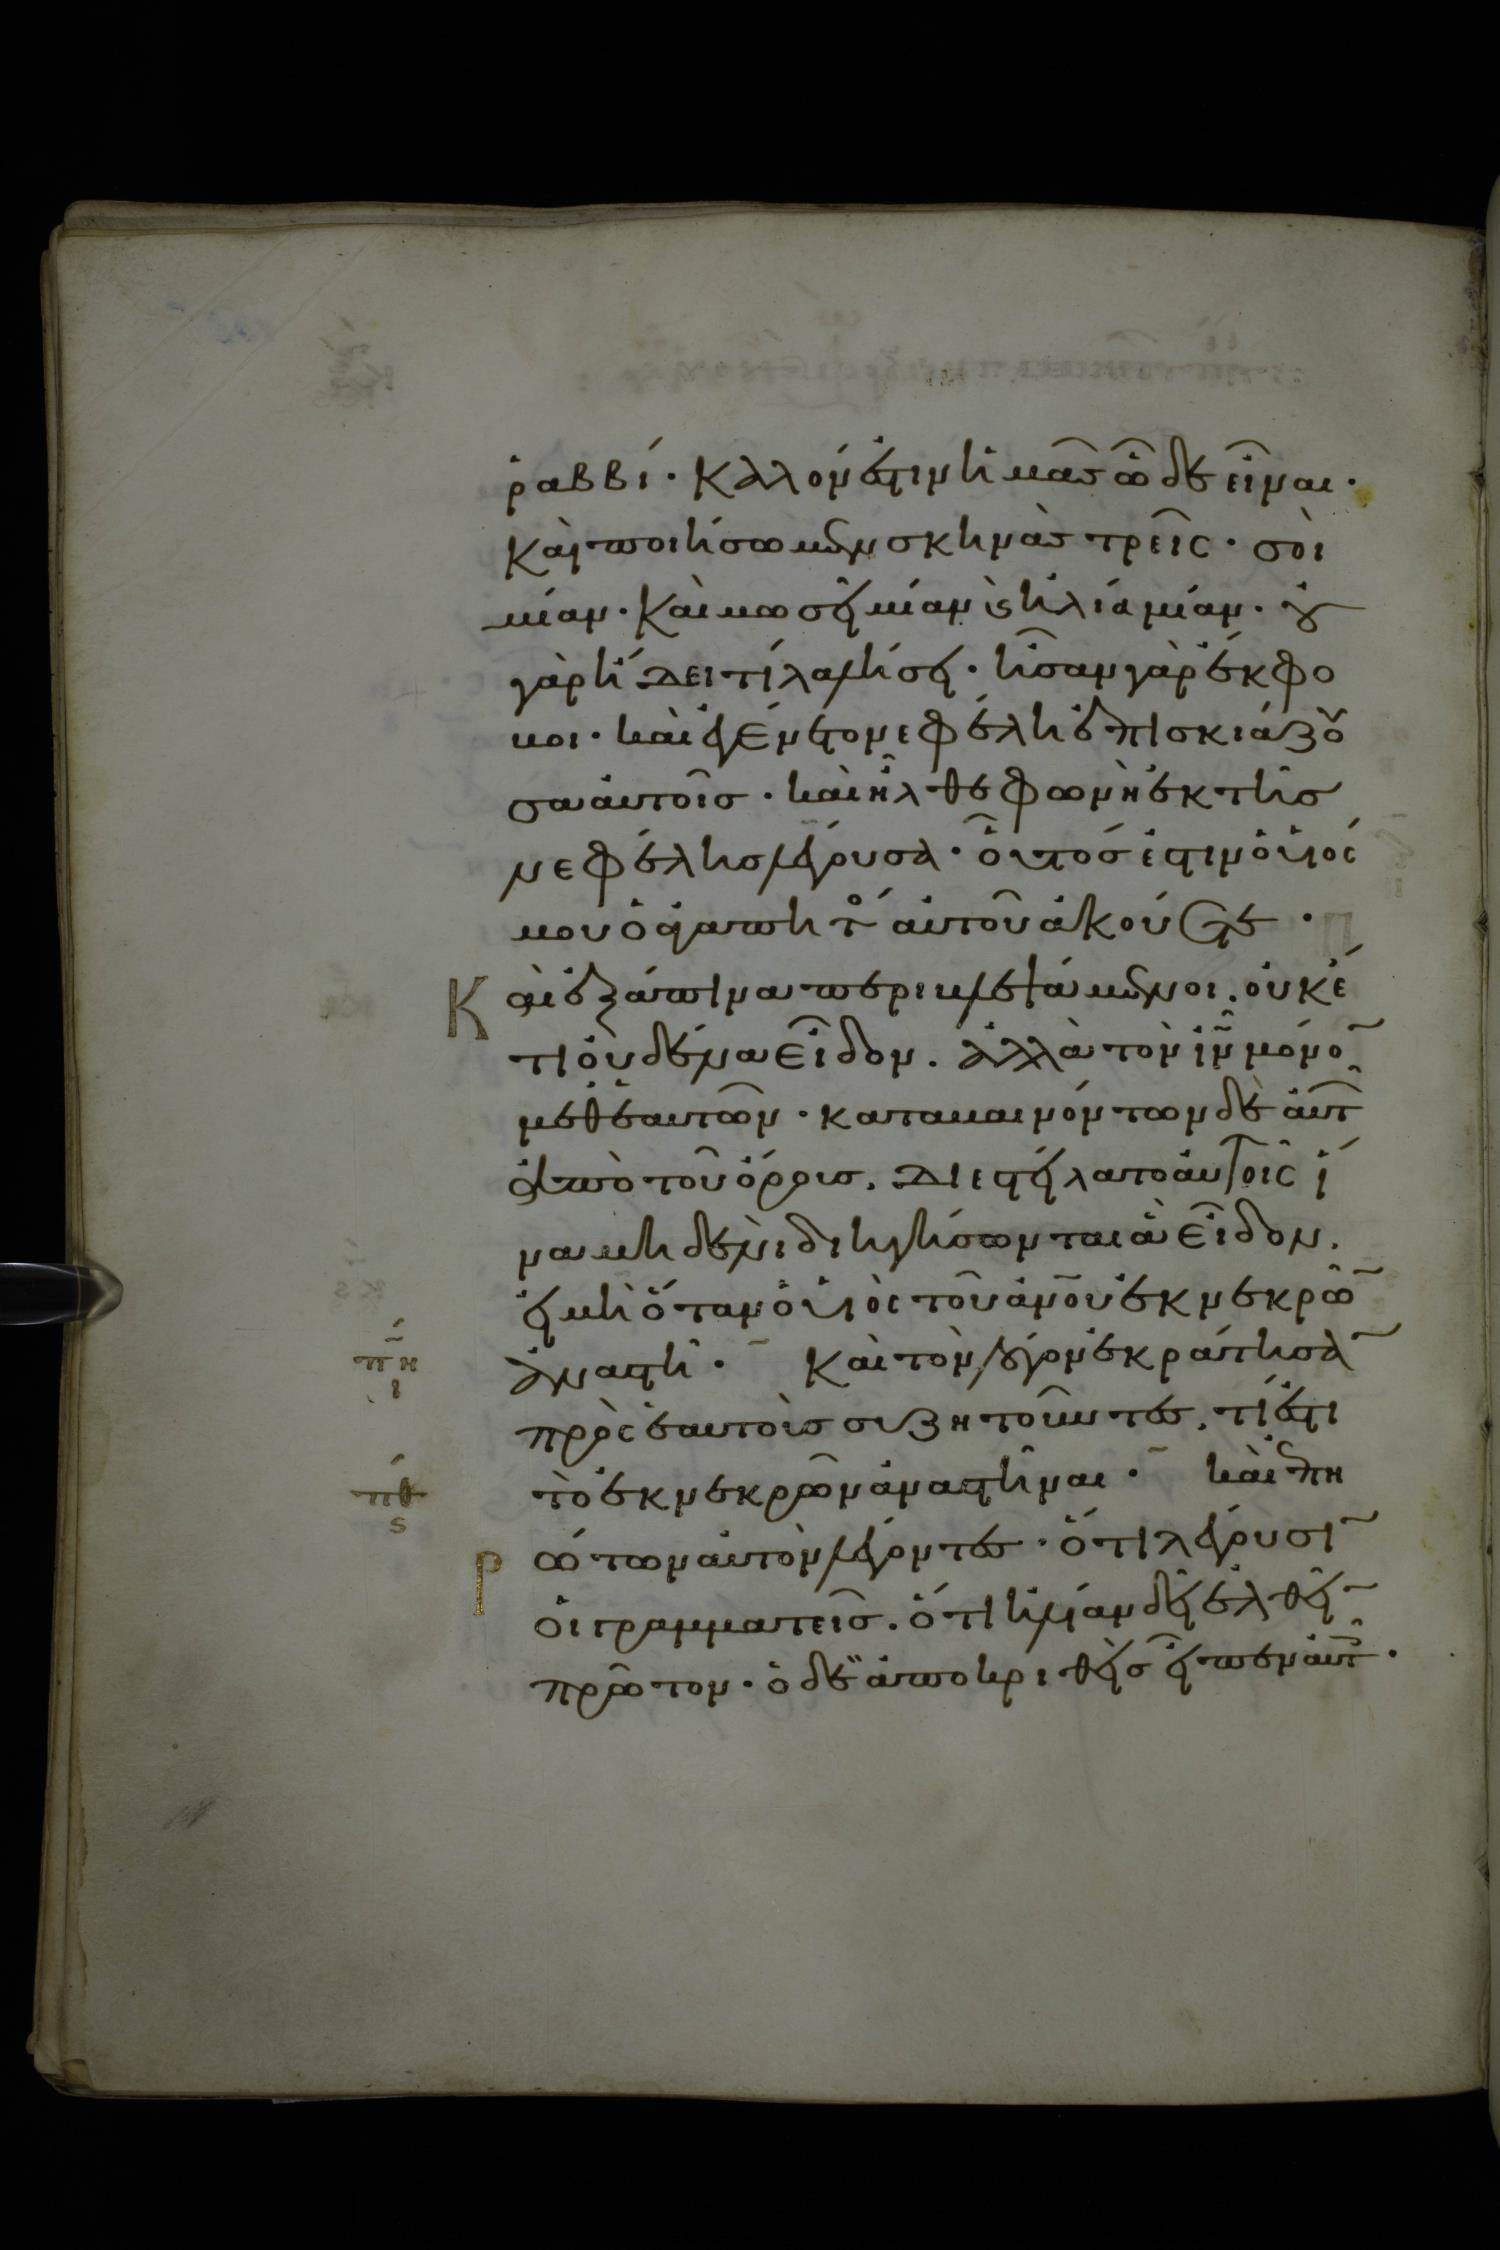 ῥαββί· καλόν ἐστιν ἡμᾶς ὧδε εἶναι·
καὶ ποιήσωμεν σκηνὰς τρεῖς· σοὶ
μίαν· καὶ μωσῆ μίαν ϗ ἠλία μίαν· οὐ
γὰρ ἤδει τί λαλήση· ἦσαν γὰρ ἔκφο
βοι· καὶ ἐγένετο νεφέλη ἐπισκιάζου
σα αὐτοῖς· καὶ ἦλθε φωνὴ ἐκ τῆς
νεφέλης λέγουσα· οὗτός ἐστιν ὁ υἱός
μου ὁ ἀγαπητός αὐτοῦ ἀκούετε·
Καὶ ἐξάπινα περιβλεψάμενοι. οὐκέ
τι οὐδένα εἶδον. ἀλλὰ τὸν ιν̅ μόνο̅
μεθ' ἑαυτῶν· καταβαινόντων δὲ αὐτῶν
ἀπὸ τοῦ ὄρους. διεστείλατο αὐτοῖς ἵ
να μηδενὶ διηγήσωνται ἃ εἶδον.
εἰ μὴ ὅταν ὁ υἱὸς τοῦ ανου̅ ἐκ νεκρῶ̅
ἀναστῆ· καὶ τὸν λόγον ἐκράτησα̅
πρὸς ἑαυτοὺς συζητοῦντες. τί ἐστι
τὸ ἐκ νεκρῶν ἀναστῆναι· καὶ ἐπη
πη
ι
ρώτων αὐτὸν λέγοντες· ὅτι λέγουσι̅
πθ
ς
οἱ γραμματεῖς. ὅτι ἠλίαν δεῖ ἐλθεῖ̅
πρῶτον· ὁ δὲ ἀποκριθεὶς εἶπεν αὐτοῖς·